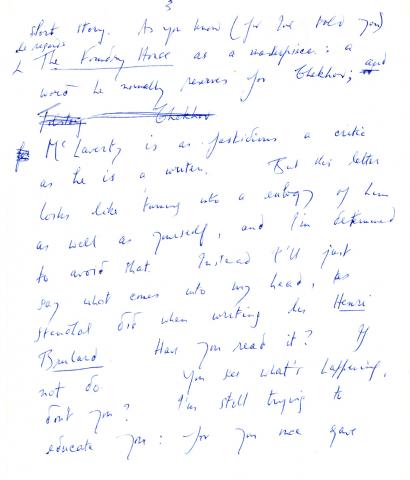 3
short story. As you know (for I've told you)
he regards
The Foundry House as a masterpiece: a
word he normally reserves for Chekhov; and
Tolstoy Chekhov
McLaverty is as fastidious a critic
as he is a writer. But this letter
looks like turning into a eulogy of him
as well as yourself, and I'm determined
to avoid that. Instead I'll just
say what comes into my head, as
Stendhal did when writing his Henri
Brulard. Have you read it? If
not do. You see what's happening,
don't you? I'm still trying to
educate you: for you once gave